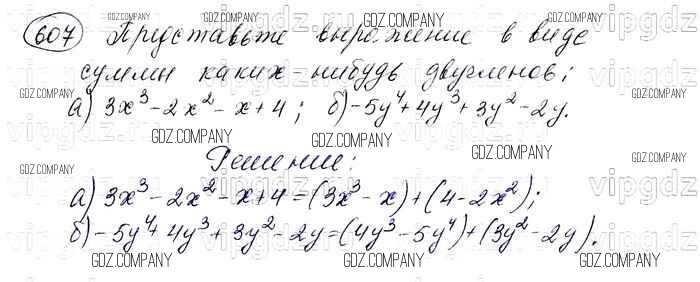 607 Представьте выражение в виде
суммы каких-нибудь двучленов:
а) 3x³ - 2x² - x + 4; б) -5y⁴ + 4y³ + 3y² - 2y.
Решение:
а) 3x³ - 2x² - x + 4 = (3x³ - x) + (4 - 2x²);
б) -5y⁴ + 4y³ + 3y² - 2y = (4y³ - 5y⁴) + (3y² - 2y).
GDZ.COMPANY
vipgdz